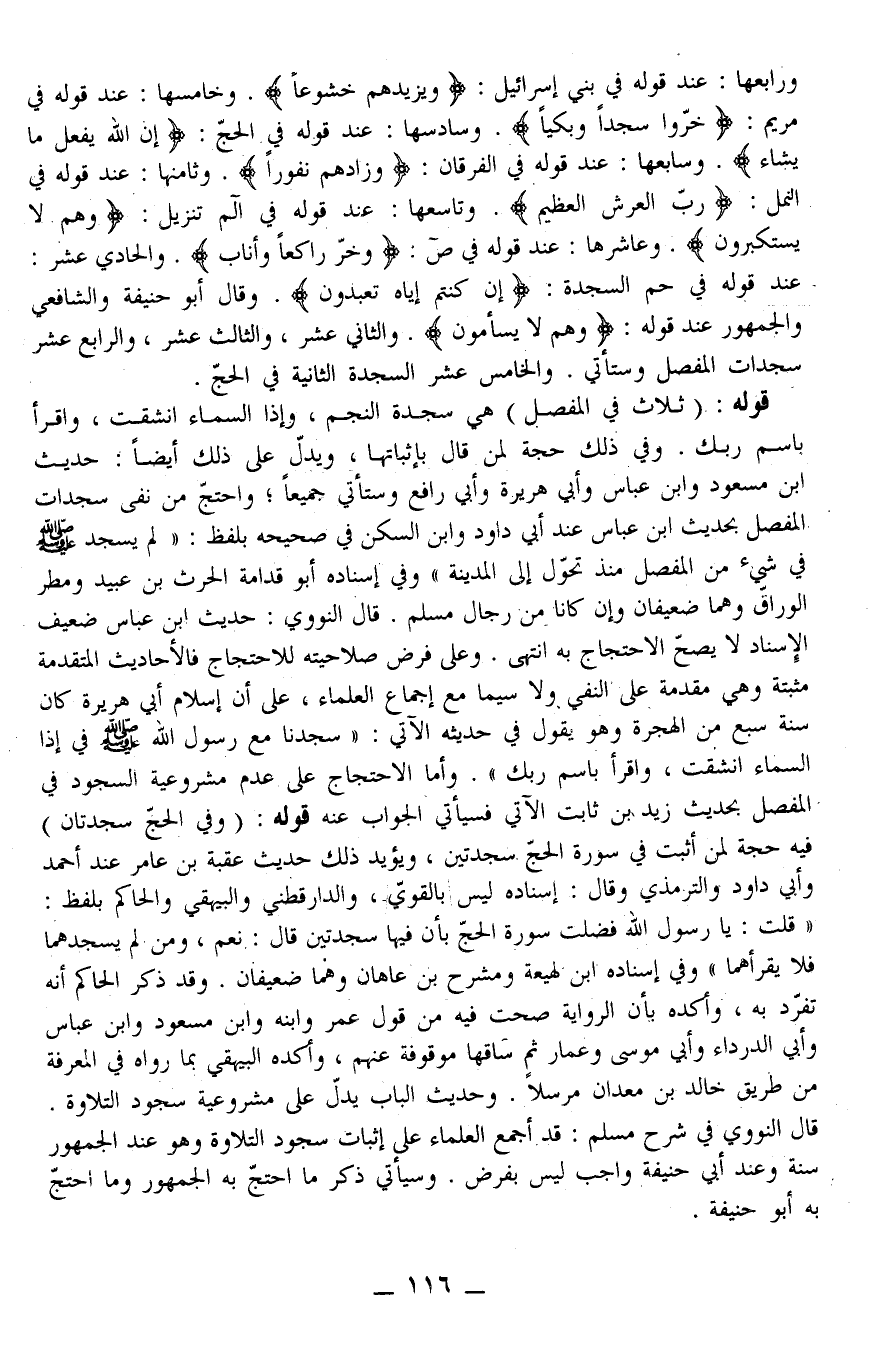 ورابعها : عند قوله في بني إسرائيل : ﴿ ويزيدهم خشوعاً ﴾ . وخامسها : عند قوله في
مريم : ﴿ خرّوا سجداً وبكياً ﴾ . وسادسها : عند قوله في الحجّ : ﴿ إن الله يفعل ما
يشاء ﴾ . وسابعها : عند قوله في الفرقان : ﴿ وزادهم نفوراً ﴾ . وثامنها : عند قوله في
النمل : ﴿ ربّ العرش العظيم ﴾ . وتاسعها : عند قوله في الٓم تنزيل : ﴿ وهم لا
يستكبرون ﴾ . وعاشرها : عند قوله في صٓ : ﴿ وخرّ راكعاً وأناب ﴾ . والحادي عشر :
عند قوله في حم السجدة : ﴿ إن كنتم إياه تعبدون ﴾ . وقال أبو حنيفة والشافعي
والجمهور عند قوله : ﴿ وهم لا يسأمون ﴾ . والثاني عشر ، والثالث عشر ، والرابع عشر
سجدات المفصل وستأتي . والخامس عشر السجدة الثانية في الحجّ .
قوله : ( ثلاث في المفصل ) هي سجدة النجم ، وإذا السماء انشقت ، واقرأ
باسم ربك . وفي ذلك حجة لمن قال بإثباتها ، ويدلّ على ذلك أيضاً : حديث
ابن مسعود وابن عباس وأبي هريرة وأبي رافع وستأتي جميعاً ؛ واحتجّ من نفى سجدات
المفصل بحديث ابن عباس عند أبي داود وابن السكن في صحيحه بلفظ : « لم يسجد ﷺ
في شيء من المفصل منذ تحوّل إلى المدينة » وفي إسناده أبو قدامة الحرث بن عبيد ومطر
الورّاق وهما ضعيفان وإن كانا من رجال مسلم . قال النووي : حديث ابن عباس ضعيف
الإسناد لا يصحّ الاحتجاج به انتهى . وعلى فرض صلاحيته للاحتجاج فالأحاديث المتقدمة
مثبتة وهي مقدمة على النفي ولا سيما مع إجماع العلماء ، على أن إسلام أبي هريرة كان
سنة سبع من الهجرة وهو يقول في حديثه الآتي : « سجدنا مع رسول الله ﷺ في إذا
السماء انشقت ، واقرأ باسم ربك » . وأما الاحتجاج على عدم مشروعية السجود في
المفصل بحديث زيد بن ثابت الآتي فسيأتي الجواب عنه قوله : ( وفي الحجّ سجدتان )
فيه حجة لمن أثبت في سورة الحجّ سجدتين ، ويؤيد ذلك حديث عقبة بن عامر عند أحمد
وأبي داود والترمذي وقال : إسناده ليس بالقويّ ، والدارقطني والبيهقي والحاكم بلفظ :
« قلت : يا رسول الله فضلت سورة الحجّ بأن فيها سجدتين قال : نعم ، ومن لم يسجدهما
فلا يقرأهما » وفي إسناده ابن لهيعة ومشرح بن عاهان وهما ضعيفان . وقد ذكر الحاكم أنه
تفرّد به ، وأكده بأن الرواية صحت فيه من قول عمر وابنه وابن مسعود وابن عباس
وأبي الدرداء وأبي موسى وعمار ثم ساقها موقوفة عنهم ، وأكده البيهقي بما رواه في المعرفة
من طريق خالد بن معدان مرسلاً . وحديث الباب يدلّ على مشروعية سجود التلاوة .
قال النووي في شرح مسلم : قد أجمع العلماء على إثبات سجود التلاوة وهو عند الجمهور
سنة وعند أبي حنيفة واجب ليس بفرض . وسيأتي ذكر ما احتجّ به الجمهور وما احتجّ
به أبو حنيفة .
– ١١٦ –